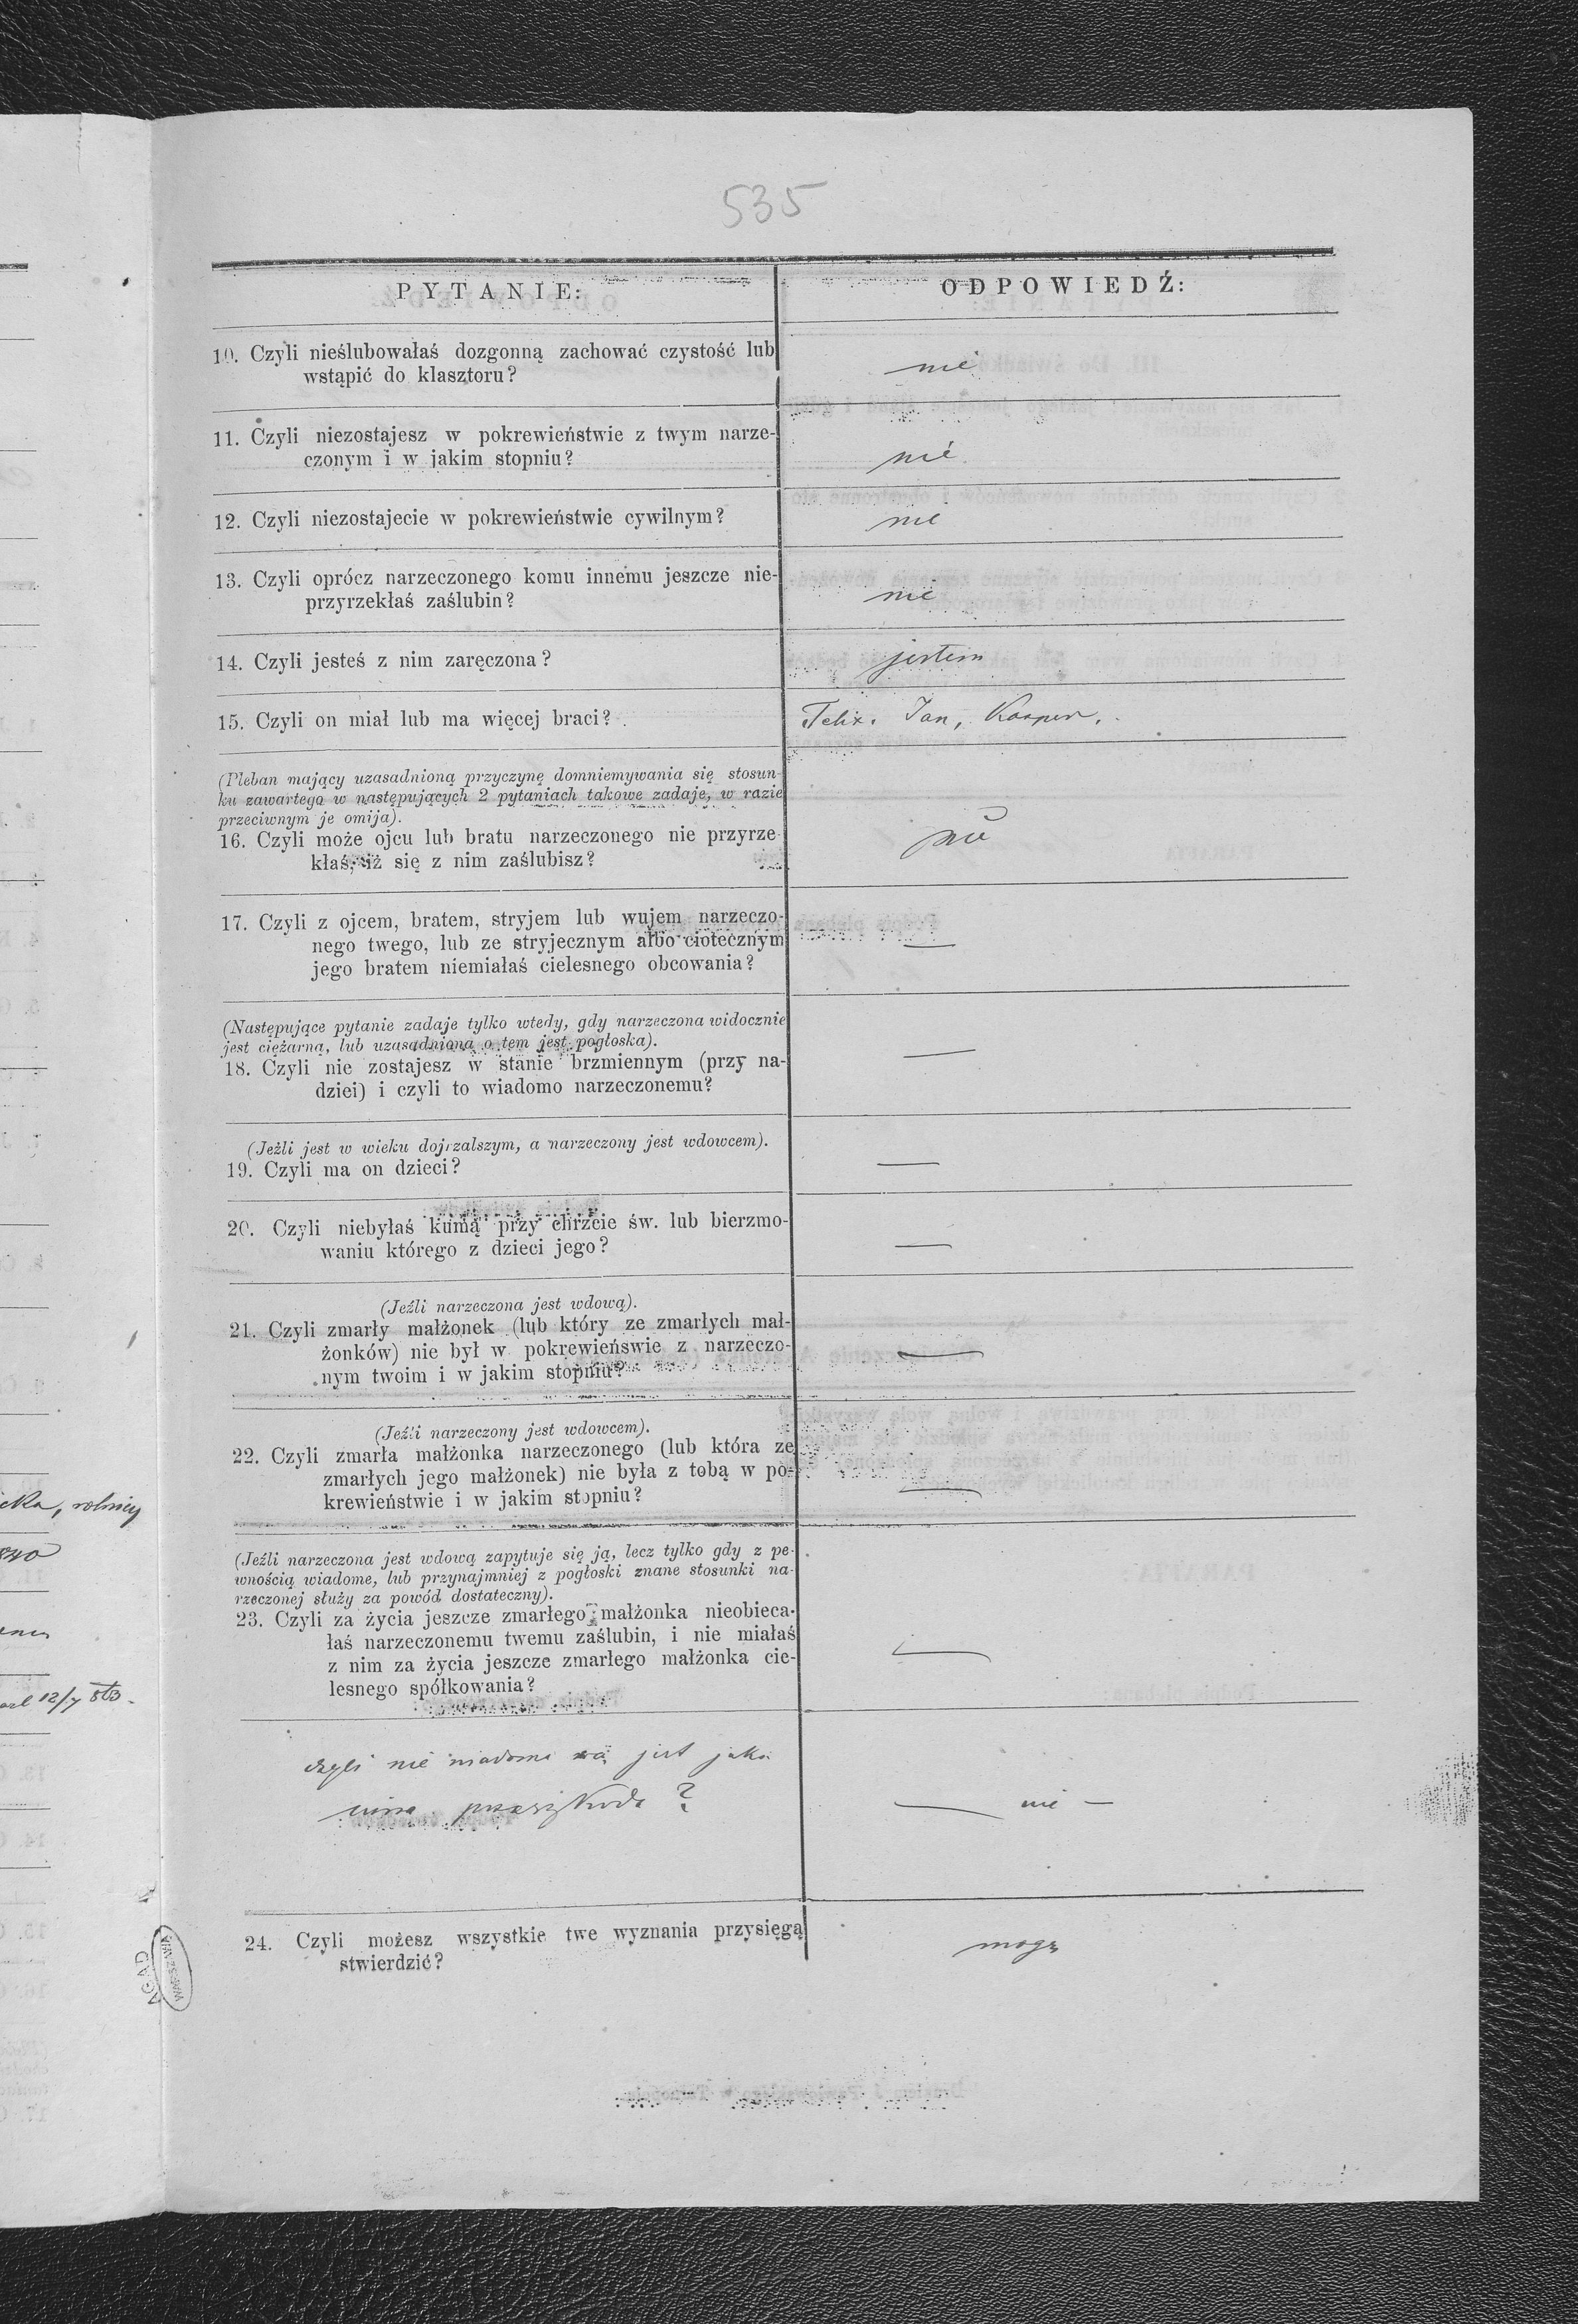 535
PYTANIE:
ODPOWIEDŹ:
10. Czyli nieślubowałaś dozgonną zachować czystość lub
wstąpić do klasztoru?
nie
11. Czyli niezostajesz w pokrewieństwie z twym narze-
czonym i w jakim stopniu?
nie
12. Czyli niezostajecie w pokrewieństwie cywilnym?
nie
13. Czyli oprócz narzeczonego komu innemu jeszcze nie-
przyrzekłaś zaślubin?
nie
14. Czyli jesteś z nim zaręczona?
jestem
15. Czyli on miał lub ma więcej braci?
Felix. Jan, Kasper.
(Pleban mający uzasadnioną przyczynę domniemywania się stosun-
ku zawartego w następujących 2 pytaniach takowe zadaje, w razie
przeciwnym je omija).
16. Czyli może ojcu lub bratu narzeczonego nie przyrze-
kłaś, iż się z nim zaślubisz?
nie
17. Czyli z ojcem, bratem, stryjem lub wujem narzeczo-
nego twego, lub ze stryjecznym albo ciotecznym
jego bratem niemiałaś cielesnego obcowania?
—
(Następujące pytanie zadaje tylko wtedy, gdy narzeczona widocznie
jest ciężarną, lub uzasadnioną o tem jest pogłoska).
18. Czyli nie zostajesz w stanie brzmiennym (przy na-
dziei) i czyli to wiadomo narzeczonemu?
—
(Jeżli jest w wieku dojrzalszym, a narzeczony jest wdowcem).
19. Czyli ma on dzieci?
—
20. Czyli niebyłaś kumą przy chrzcie św. lub bierzmo-
waniu którego z dzieci jego?
—
(Jeźli narzeczona jest wdową).
21. Czyli zmarły małżonek (lub który ze zmarłych mał-
żonków) nie był w pokrewieńswie z narzeczo-
nym twoim i w jakim stopniu?
—
(Jeźli narzeczony jest wdowcem).
22. Czyli zmarła małżonka narzeczonego (lub która ze
zmarłych jego małżonek) nie była z tobą w po-
krewieństwie i w jakim stopniu?
—
(Jeźli narzeczona jest wdową zapytuje się ją, lecz tylko gdy z pe-
wnością wiadome, lub przynajmniej z pogłoski znane stosunki na-
rzeczonej służy za powód dostateczny).
23. Czyli za życia jeszcze zmarłego małżonka nieobieca-
łaś narzeczonemu twemu zaślubin, i nie miałaś
z nim za życia jeszcze zmarłego małżonka cie-
lesnego spółkowania?
—
czyli nie wiadoma jest jaka
inna przeszkoda?
— nie —
24. Czyli możesz wszystkie twe wyznania przysięgą
stwierdzić?
mogę
AGAD
WARSZAWA
rolnicy
12/7